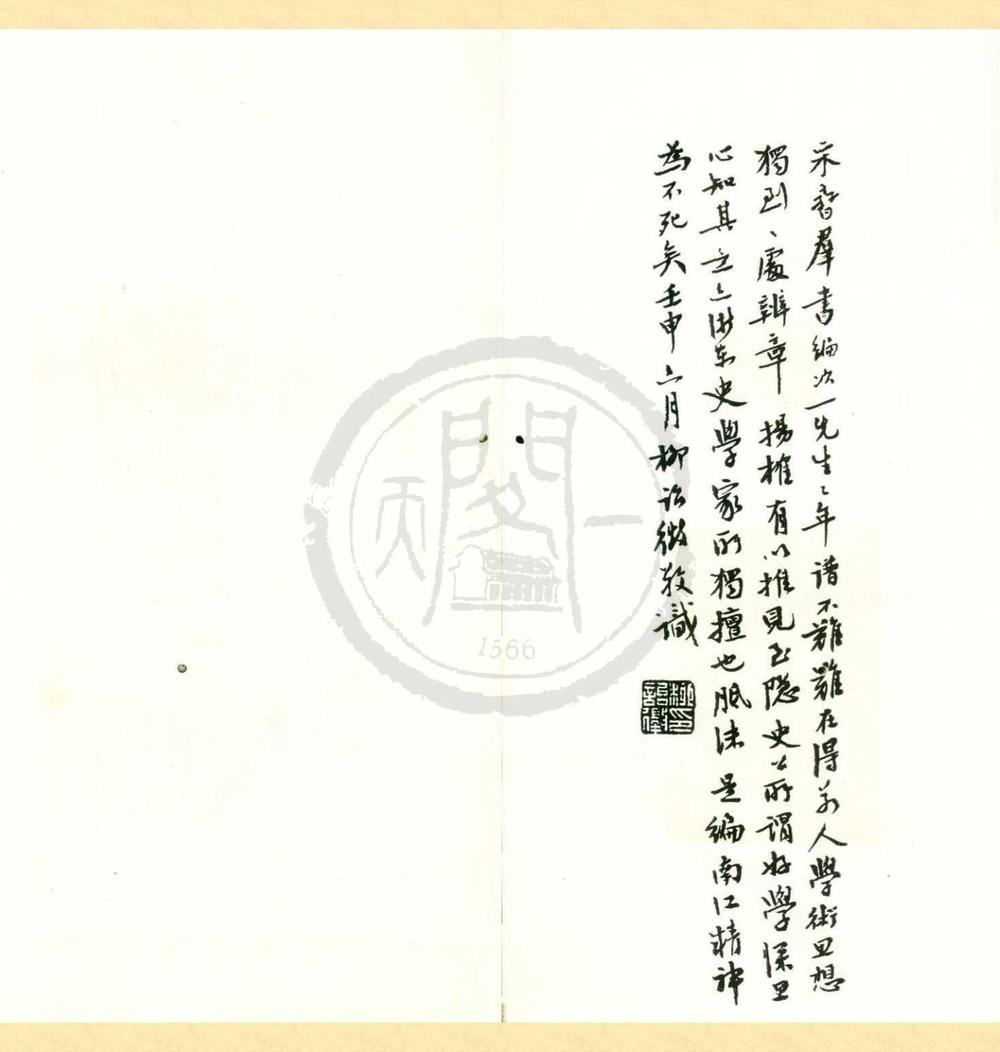 采摭羣書編次一先生之年譜不難難在得前人學術思想
獨到之處辨章揚榷有以推見至隱史公所謂好學深思
心知其意亦浙東史學家所獨擅也胝沫是編南江精神
為不死矣壬申六月柳詒徵敬識
柳詒徵印
天一閣
1566